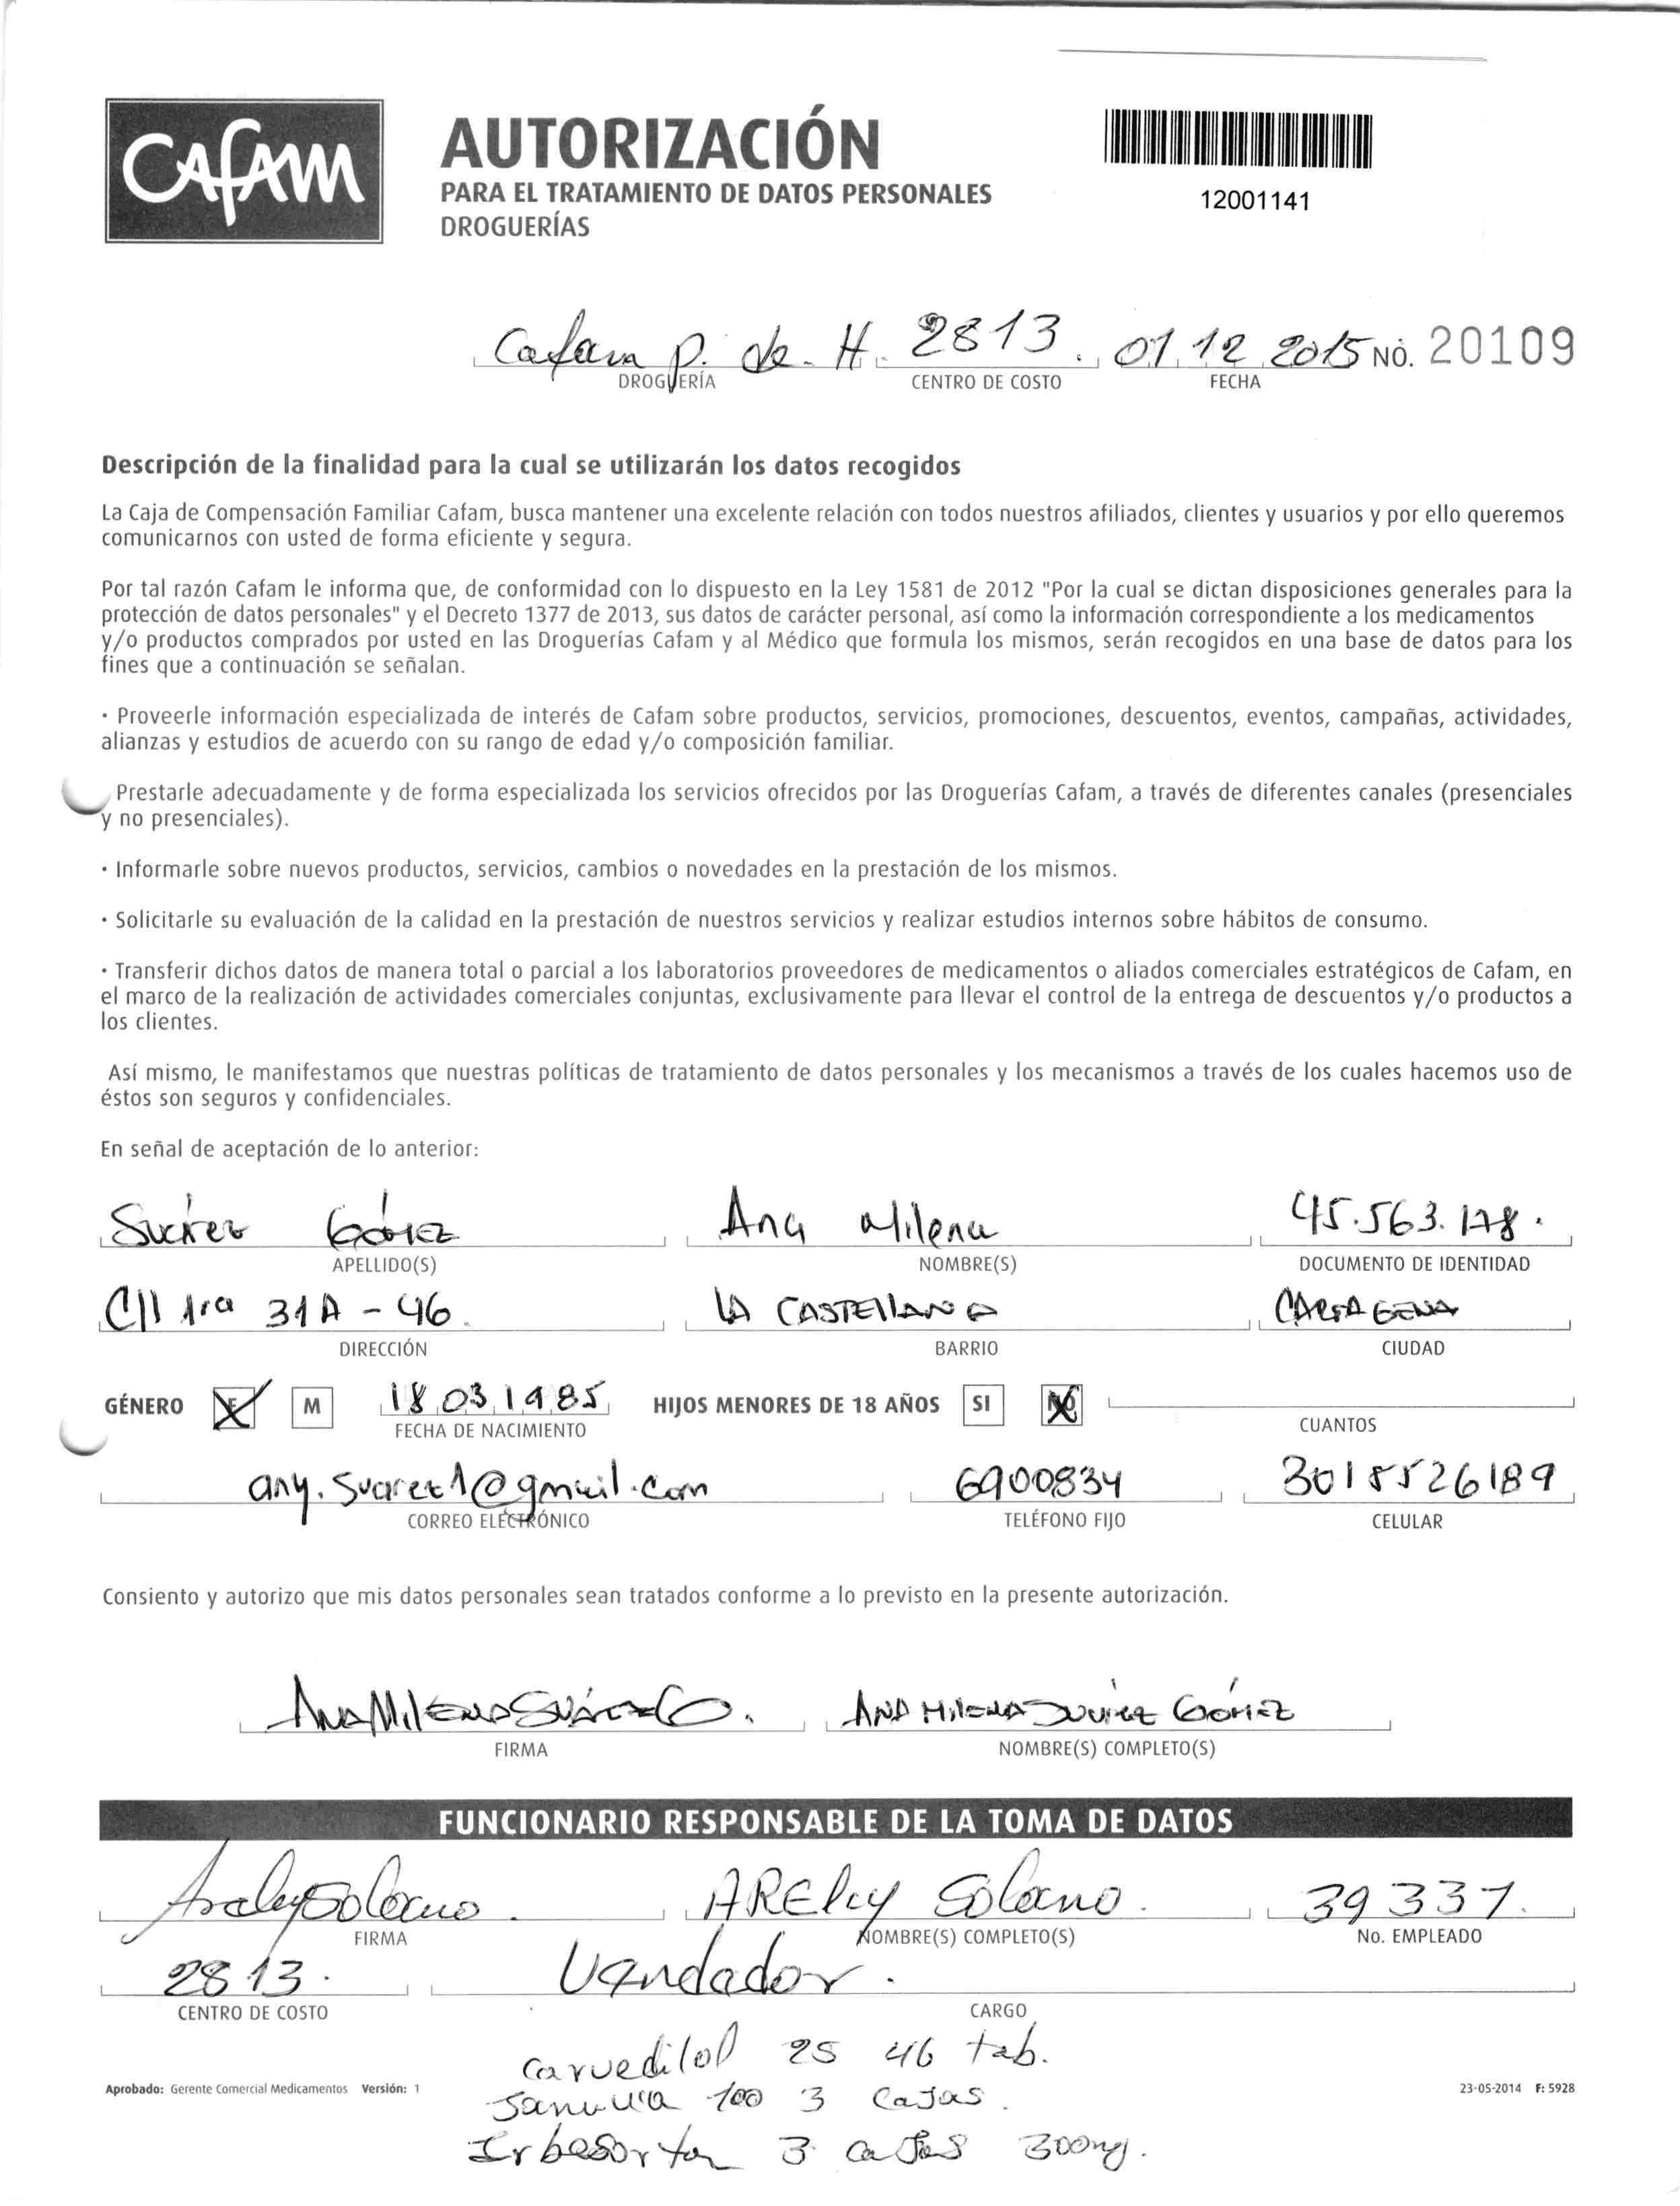 Cafam
AUTORIZACIÓN
PARA EL TRATAMIENTO DE DATOS PERSONALES
DROGUERÍAS
12001141
Cafam p. de H. 2813. 01 12 2015 NO. 20109
DROGUERÍA CENTRO DE COSTO FECHA
Descripción de la finalidad para la cual se utilizarán los datos recogidos
La Caja de Compensación Familiar Cafam, busca mantener una excelente relación con todos nuestros afiliados, clientes y usuarios y por ello queremos
comunicarnos con usted de forma eficiente y segura.
Por tal razón Cafam le informa que, de conformidad con lo dispuesto en la Ley 1581 de 2012 "Por la cual se dictan disposiciones generales para la
protección de datos personales" y el Decreto 1377 de 2013, sus datos de carácter personal, así como la información correspondiente a los medicamentos
y/o productos comprados por usted en las Droguerías Cafam y al Médico que formula los mismos, serán recogidos en una base de datos para los
fines que a continuación se señalan.
· Proveerle información especializada de interés de Cafam sobre productos, servicios, promociones, descuentos, eventos, campañas, actividades,
alianzas y estudios de acuerdo con su rango de edad y/o composición familiar.
Prestarle adecuadamente y de forma especializada los servicios ofrecidos por las Droguerías Cafam, a través de diferentes canales (presenciales
y no presenciales).
· Informarle sobre nuevos productos, servicios, cambios o novedades en la prestación de los mismos.
· Solicitarle su evaluación de la calidad en la prestación de nuestros servicios y realizar estudios internos sobre hábitos de consumo.
· Transferir dichos datos de manera total o parcial a los laboratorios proveedores de medicamentos o aliados comerciales estratégicos de Cafam, en
el marco de la realización de actividades comerciales conjuntas, exclusivamente para llevar el control de la entrega de descuentos y/o productos a
los clientes.
Así mismo, le manifestamos que nuestras políticas de tratamiento de datos personales y los mecanismos a través de los cuales hacemos uso de
éstos son seguros y confidenciales.
En señal de aceptación de lo anterior:
Suárez Gómez Ana Milena 45.563.178.
APELLIDO(S) NOMBRE(S) DOCUMENTO DE IDENTIDAD
Cll 1ra 31A - 46. LA CASTELLANA CARTAGENA
DIRECCIÓN BARRIO CIUDAD
GÉNERO F M 18 03 1985 HIJOS MENORES DE 18 AÑOS SI NO
FECHA DE NACIMIENTO CUANTOS
any.suarez1@gmail.com 6900834 3015526189
CORREO ELECTRÓNICO TELÉFONO FIJO CELULAR
Consiento y autorizo que mis datos personales sean tratados conforme a lo previsto en la presente autorización.
ANA MILENA SUÁREZ G. ANA MILENA SUÁREZ GÓMEZ
FIRMA NOMBRE(S) COMPLETO(S)
FUNCIONARIO RESPONSABLE DE LA TOMA DE DATOS
Arelys Solano. ARELCY Solano. 39 337.
FIRMA NOMBRE(S) COMPLETO(S) No. EMPLEADO
2813. Vendador.
CENTRO DE COSTO CARGO
Carvedilol 25 46 tab.
Aprobado: Gerente Comercial Medicamentos Versión: 1 23-05-2014 F: 5928
Januvia 100 3 Cajas.
Irbesortan 3 cajas 300mg.